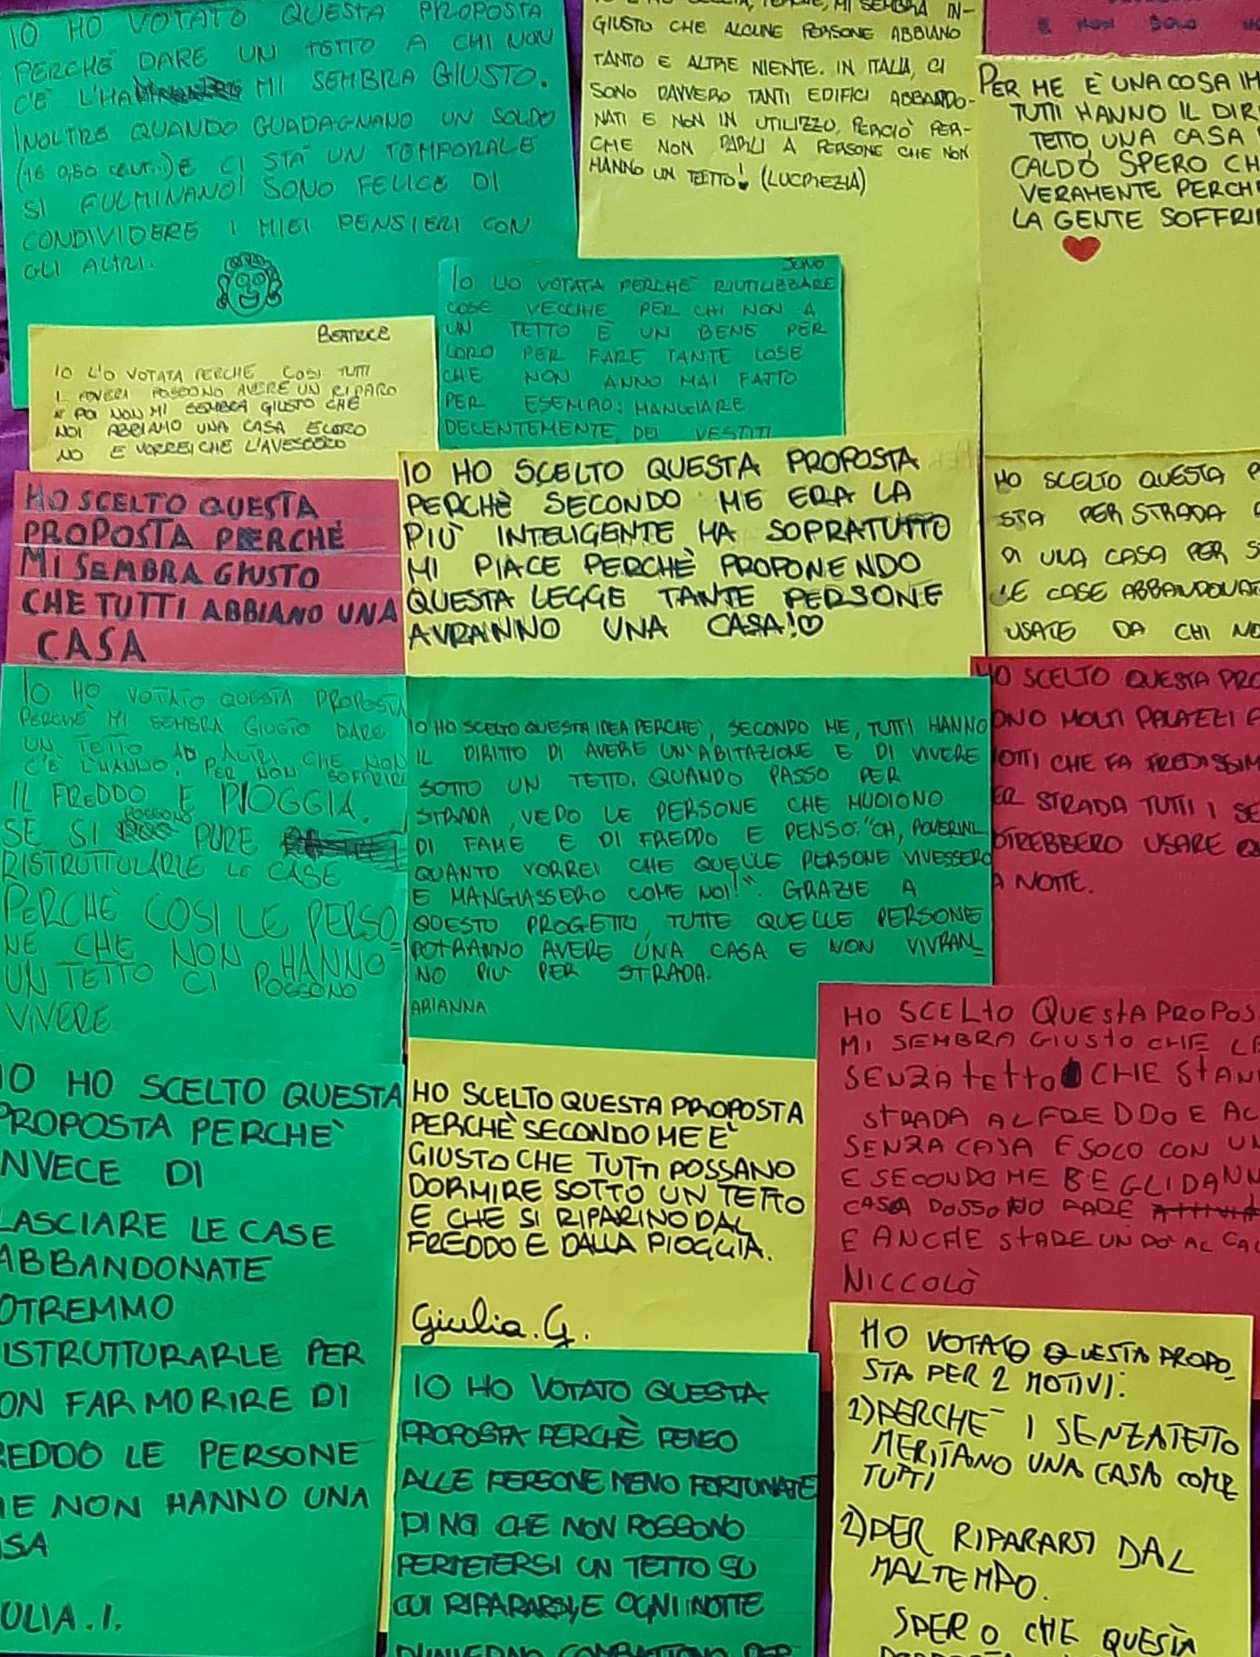 IO HO VOTATO QUESTA PROPOSTA
PERCHÈ DARE UN TETTO A CHI NON
C'È L'HA MI SEMBRA GIUSTO.
INOLTRE QUANDO GUADAGNANO UN SOLDO
E CI STA UN TEMPORALE
SI FULMINANO! SONO FELICE DI
CONDIVIDERE I MIEI PENSIERI CON
GLI ALTRI.
MI SEMBRA IN-
GIUSTO CHE ALCUNE PERSONE ABBIANO
TANTO E ALTRE NIENTE. IN ITALIA, CI
SONO DAVVERO TANTI EDIFICI ABBANDO-
NATI E NON IN UTILIZZO, PERCIÒ PER-
CHE NON DARLI A PERSONE CHE NON
HANNO UN TETTO! (LUCREZIA)
E NON SOLO
PER ME È UNA COSA IM
TUTTI HANNO IL DIR
TETTO, UNA CASA
CALDO SPERO CH
VERAMENTE PERCH
LA GENTE SOFFRI
BEATRICE
IO L'O VOTATA PERCHE COSI TUTTI
I POVERI POSSONO AVERE UN RIPARO
E POI NON MI SEMBRA GIUSTO CHE
NOI ABBIAMO UNA CASA E LORO
NO E VORREI CHE L'AVESSERO
IO UO VOTATA PERCHÈ RIUTILIZZARE
COSE VECCHIE PER CHI NON A
UN TETTO E UN BENE PER
LORO PER FARE TANTE COSE
CHE NON ANNO MAI FATTO
PER ESEMPIO: MANGIARE
DECENTEMENTE, DEI VESTITI
HO SCELTO QUESTA
PROPOSTA PERCHÈ
MI SEMBRA GIUSTO
CHE TUTTI ABBIANO UNA
CASA
IO HO SCELTO QUESTA PROPOSTA
PERCHÈ SECONDO ME ERA LA
PIÙ INTELIGENTE HA SOPRATUTTO
MI PIACE PERCHÈ PROPONENDO
QUESTA LEGGE TANTE PERSONE
AVRANNO UNA CASA!♡
HO SCELTO QUESTA P
STA PER STRADA
DI UNA CASA PER S
LE CASE ABBANDONAT
USATE DA CHI NO
IO HO VOTATO QUESTA PROPOSTA
PERCHÈ MI SEMBRA GIUSTO DARE
UN TETTO AD ALTRI CHE NON
C'È L'HANNO, PER NON SOFFRIRE
IL FREDDO E PIOGGIA.
SE SI POSSONO PURE
RISTRUTTULARLE LE CASE
PERCHÈ COSI LE PERSO
NE CHE NON HANNO
UN TETTO CI POSSONO
VIVERE
IO HO SCELTO QUESTA IDEA PERCHE', SECONDO ME, TUTTI HANNO
IL DIRITTO DI AVERE UN'ABITAZIONE E DI VIVERE
SOTTO UN TETTO. QUANDO PASSO PER
STRADA, VEDO LE PERSONE CHE MUOIONO
DI FAME E DI FREDDO E PENSO: "OH, POVERINI
QUANTO VORREI CHE QUELLE PERSONE VIVESSERO
E MANGIASSERO COME NOI!". GRAZIE A
QUESTO PROGETTO, TUTTE QUELLE PERSONE
POTRANNO AVERE UNA CASA E NON VIVRAN_
NO PIÙ PER STRADA.
ARIANNA
HO SCELTO QUESTA PRO
ONO MOLTI PALAZZI E
OTTI CHE FA FREDISSIM
ER STRADA TUTTI I SE
OTREBBERO USARE
A NOTTE.
HO SCELTO QUESTA PROPOS
MI SEMBRA GIUSTO CHE
SENZA tEttO CHE STAN
STRADA AL FREDDO E AC
SENZA CASA E SOCO CON U
E SECONDO ME
E ANCHE STARE UN PO' AL CAL
NICCOLÒ
IO HO SCELTO QUESTA
PROPOSTA PERCHE`
NVECE DI
LASCIARE LE CASE
ABBANDONATE
OTREMMO
ISTRUTTURARLE PER
ON FAR MORIRE DI
REDDO LE PERSONE
HE NON HANNO UNA
SA
ULIA.I.
HO SCELTO QUESTA PROPOSTA
PERCHÈ SECONDO ME E'
GIUSTO CHE TUTTI POSSANO
DORMIRE SOTTO UN TETTO
E CHE SI RIPARINO DAL
FREDDO E DALLA PIOGGIA.
Giulia.G.
IO HO VOTATO QUESTA
PROPOSTA PERCHÈ PENSO
ALLE PERSONE MENO FORTUNATE
DI NOI CHE NON POSSONO
PERMETERSI UN TETTO SU
CUI RIPARARSI, E OGNI NOTTE
D'INVERNO COMBATTONO PER
HO VOTATO QUESTA PROPO_
STA PER 2 MOTIVI:
1) PERCHE` I SENZATETTO
MERITANO UNA CASA COME
TUTTI
2) PER RIPARARSI DAL
MALTEMPO.
SPERO CHE QUESTA